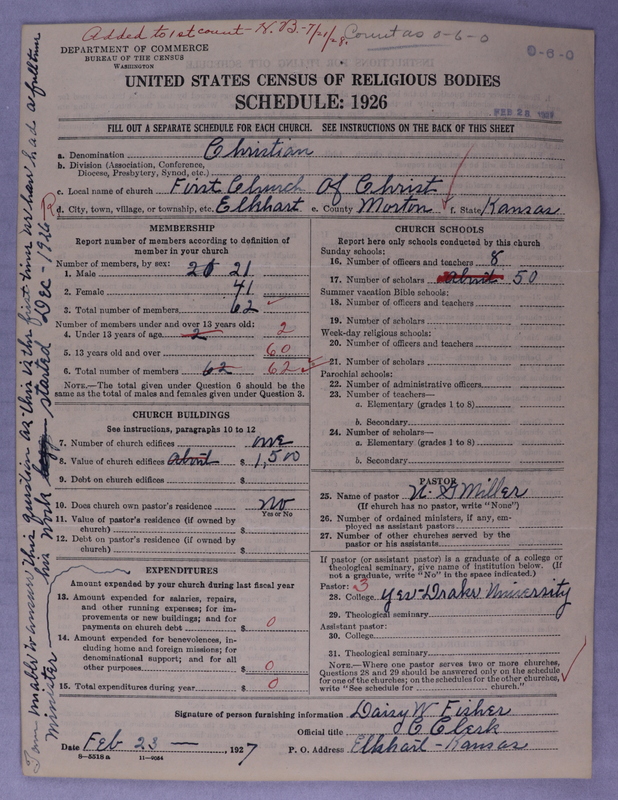 Added to 1st count - N. B. - 7/21/28. Count as 0-6-0
0-6-0
DEPARTMENT OF COMMERCE
BUREAU OF THE CENSUS
WASHINGTON
UNITED STATES CENSUS OF RELIGIOUS BODIES
SCHEDULE: 1926
FEB 28 1927
FILL OUT A SEPARATE SCHEDULE FOR EACH CHURCH. SEE INSTRUCTIONS ON THE BACK OF THIS SHEET
a. Denomination Christian
b. Division (Association, Conference,
Diocese, Presbytery, Synod, etc.)
c. Local name of church First Church Of Christ
R d. City, town, village, or township, etc. Elkhart e. County Morton f. State Kansas
MEMBERSHIP
Report number of members according to definition of
member in your church
Number of members, by sex:
1. Male 21
2. Female 41
3. Total number of members 62
Number of members under and over 13 years old:
4. Under 13 years of age 2 2
5. 13 years old and over 60
6. Total number of members 62 62
NOTE.—The total given under Question 6 should be the
same as the total of males and females given under Question 3.
CHURCH BUILDINGS
See instructions, paragraphs 10 to 12
7. Number of church edifices one
8. Value of church edifices About $ 1,500
9. Debt on church edifices $
10. Does church own pastor's residence? No
Yes or No
11. Value of pastor's residence (if owned by
church) $
12. Debt on pastor's residence (if owned by
church) $
EXPENDITURES
Amount expended by your church during last fiscal year
13. Amount expended for salaries, repairs,
and other running expenses; for im-
provements or new buildings; and for
payments on church debt $ 0
14. Amount expended for benevolences, in-
cluding home and foreign missions; for
denominational support; and for all
other purposes $ 0
15. Total expenditures during year $ 0
CHURCH SCHOOLS
Report here only schools conducted by this church
Sunday schools:
16. Number of officers and teachers 8
17. Number of scholars About 50
Summer vacation Bible schools:
18. Number of officers and teachers
19. Number of scholars
Week-day religious schools:
20. Number of officers and teachers
21. Number of scholars
Parochial schools:
22. Number of administrative officers
23. Number of teachers—
a. Elementary (grades 1 to 8)
b. Secondary
24. Number of scholars—
a. Elementary (grades 1 to 8)
b. Secondary
PASTOR
25. Name of pastor Miller
(If church has no pastor, write "None")
26. Number of ordained ministers, if any, em-
ployed as assistant pastors
27. Number of other churches served by the
pastor or his assistants
If pastor (or assistant pastor) is a graduate of a college or
theological seminary, give name of institution below. (If
not a graduate, write "No" in the space indicated.)
Pastor: 3
28. College yes-Drake University
29. Theological seminary
Assistant pastor:
30. College
31. Theological seminary
NOTE.—Where one pastor serves two or more churches,
Questions 28 and 29 should be answered only on the schedule
for one of the churches; on the schedules for the other churches,
write "See schedule for church."
Signature of person furnishing information Daisy W. Fisher
Official title C Clerk
Date Feb 23 — , 1927 P. O. Address Elkhart - Kansas
8—5518 a 11—9054
I am unable to answer this question as this is the first time we have had a full time
Minister his work started Dec - 1926